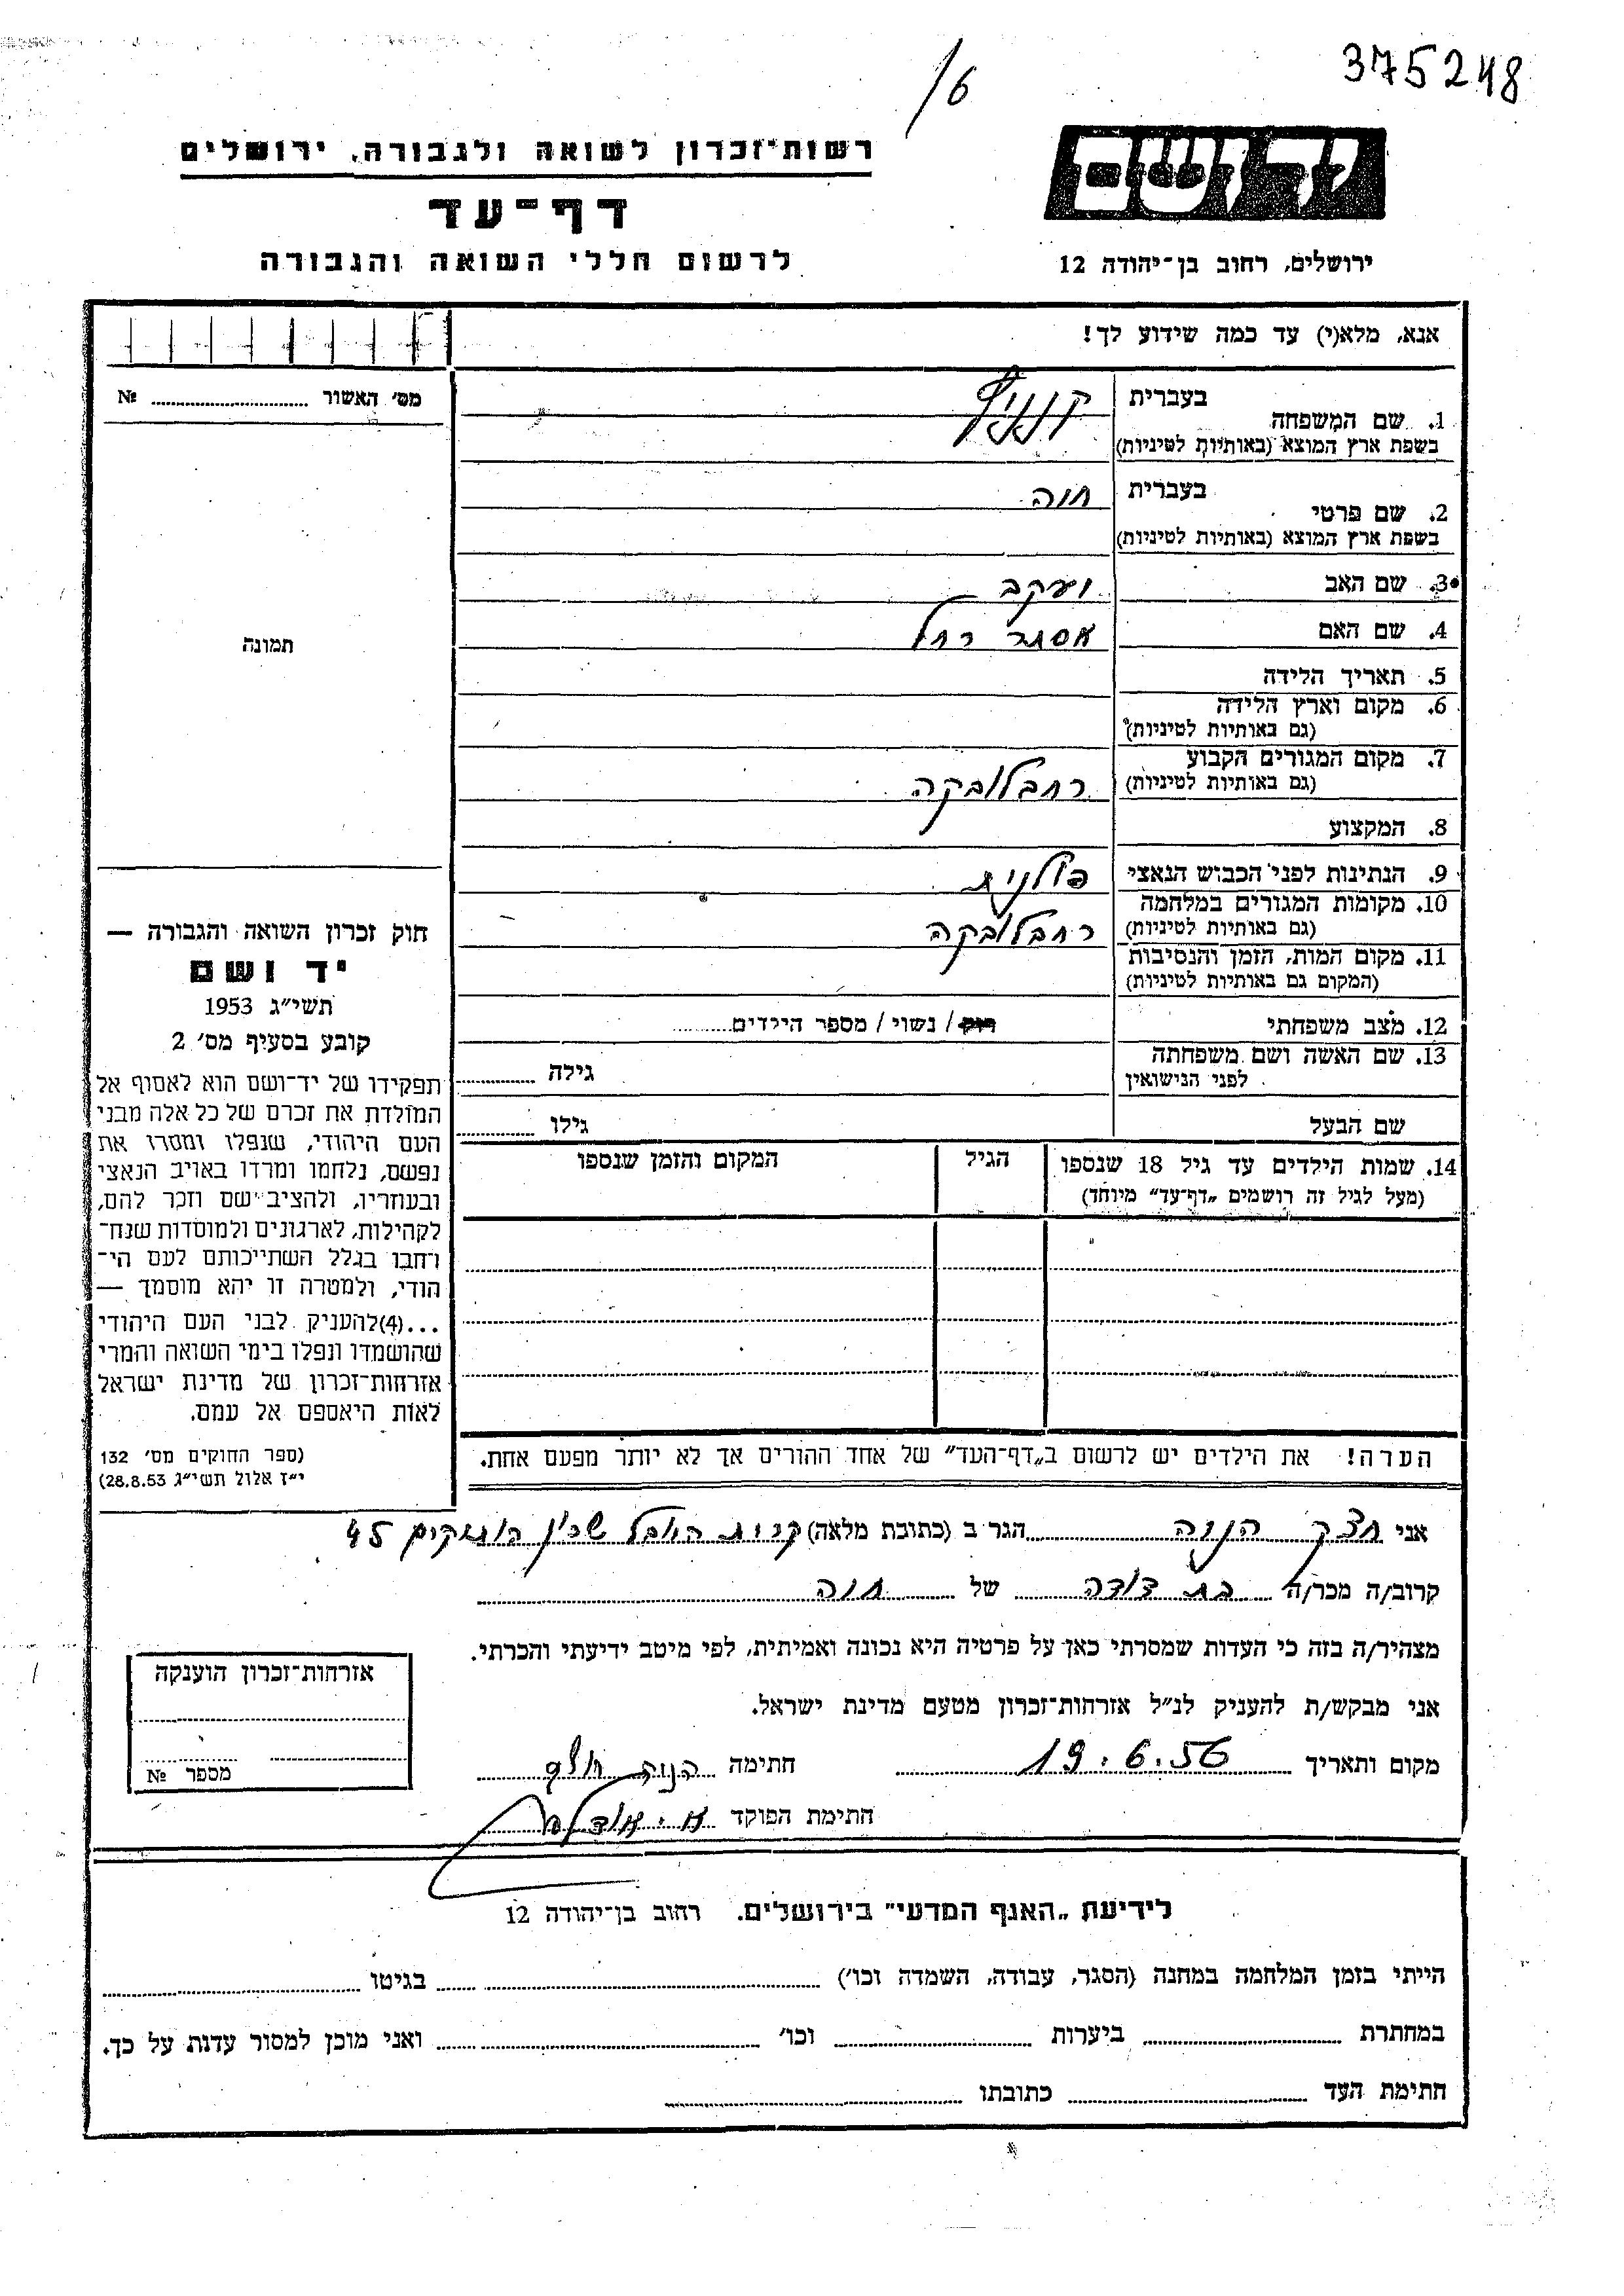 375248
/6
יד ושם
רשות־זכרון לשואה ולגבורה, ירושלים
דף־עד
לרשום חללי השואה והגבורה
ירושלים, רחוב בן־יהודה 12
אנא, מלא(י) עד כמה שידוע לך!
מס׳ האשור № 
1. שם המשפחה
בעברית
בשפת ארץ המוצא (באותיות לטיניות)
2. שם פרטי
בעברית חוה
בשפת ארץ המוצא (באותיות לטיניות)
3. שם האב יעקב
4. שם האם אסתר רחל
5. תאריך הלידה
6. מקום וארץ הלידה
(גם באותיות לטיניות)
7. מקום המגורים הקבוע
(גם באותיות לטיניות) רחבלובקה
8. המקצוע
9. הנתינות לפני הכבוש הנאצי פולנית
10. מקומות המגורים במלחמה
(גם באותיות לטיניות) רחבלובקה
11. מקום המות, הזמן והנסיבות
(המקום גם באותיות לטיניות)
12. מצב משפחתי רווק / נשוי / מספר הילדים
13. שם האשה ושם משפחתה
לפני הנישואין גילה
שם הבעל גילו
14. שמות הילדים עד גיל 18 שנספו הגיל המקום והזמן שנספו
(מעל לגיל זה רושמים „דף־עד״ מיוחד)
הערה! את הילדים יש לרשום ב„דף־העד״ של אחד ההורים אך לא יותר מפעם אחת.
תמונה
חוק זכרון השואה והגבורה —
יד ושם
תשי״ג 1953
קובע בסעיף מס׳ 2
תפקידו של יד־ושם הוא לאסוף אל
המולדת את זכרם של כל אלה מבני
העם היהודי, שנפלו ומסרו את
נפשם, נלחמו ומרדו באויב הנאצי
ובעוזריו, ולהציב שם וזכר להם,
לקהילות, לארגונים ולמוסדות שנח־
רחבו בגלל השתייכותם לעם הי־
הודי, ולמטרה זו יהא מוסמך —
...(4)להעניק לבני העם היהודי
שהושמדו ונפלו בימי השואה והמרי
אזרחות־זכרון של מדינת ישראל
לאות היאספם אל עמם.
(ספר החוקים מס׳ 132
י״ז אלול תשי״ג 28.8.53)
אני הנוה הגר ב (כתובת מלאה) שכון הותיקים 45
קרוב/ה מכר/ה בת דודה של חוה
מצהיר/ה בזה כי העדות שמסרתי כאן על פרטיה היא נכונה ואמיתית, לפי מיטב ידיעתי והכרתי.
אני מבקש/ת להעניק לנ״ל אזרחות־זכרון מטעם מדינת ישראל.
מקום ותאריך 19.6.56 חתימה
חתימת הפוקד
אזרחות־זכרון הוענקה
מספר №
לידיעת „האגף המדעי״ בירושלים. רחוב בן־יהודה 12
הייתי בזמן המלחמה במחנה (הסגר, עבודה, השמדה וכו׳) בגיטו
במחתרת ביערות וכו׳ ואני מוכן למסור עדות על כך.
חתימת העד כתובתו